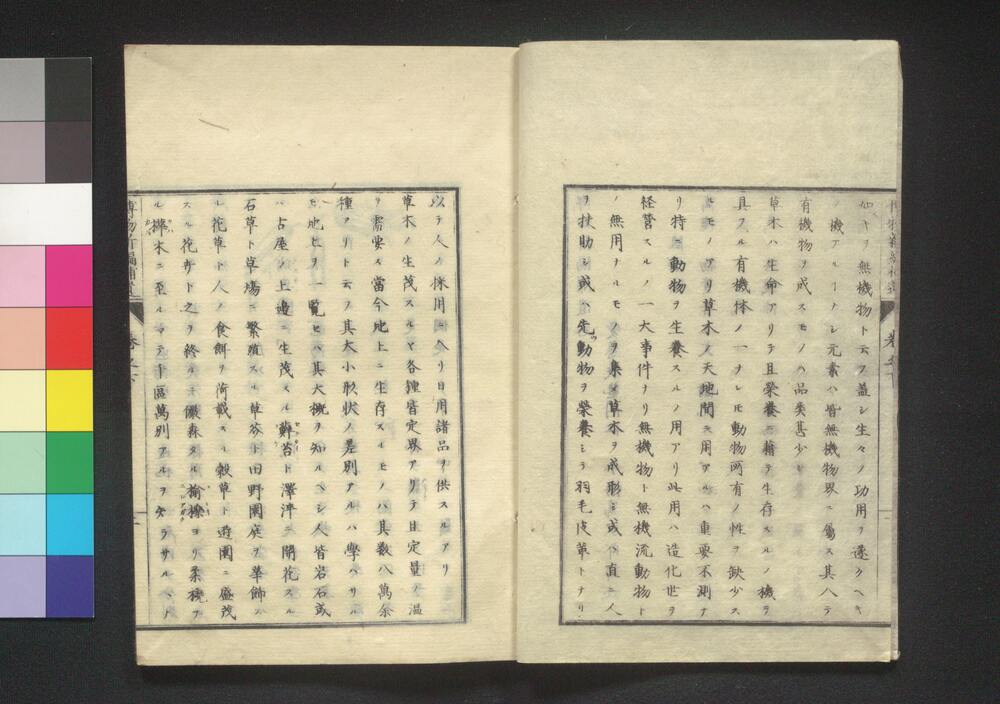 如キヲ無機物ト云フ蓋シ生々ノ功用ヲ遂クヘキ
ノ機アルコナシ元素ハ皆無機物界ニ屬ス其八テ
有機物ヲ成スモノハ品类甚少シ
草木ハ生命アリテ且榮養ニ藉テ生存スルノ機ヲ
具フル有機体ノ一ナレ𪜈動物所有ノ性ヲ缺少ス
ルモノナリ草木ノ天地間ニ用アルハ重要不測ナ
リ特ニ動物ヲ生養スルノ用アリ此用ハ造化世ヲ
経営スルノ一大事件ナリ無機物ト無機流動物ト
ノ無用ナルモノヲ集メ草木ヲ成形シ或ハ直ニ人
ヲ扶助シ或ハ先ツ動物ヲ榮養シテ羽毛皮革トナリ
以テ人ノ採用ニ入リ日用諸品ヲ供スルアリ
草木ノ生茂スルヤ各種皆定界アリテ且定量ノ温
ヲ需要ス當今地上ニ生存スルモノハ其数八萬余
種アリト云フ其大小形状ノ差別アルハ學ハサル
モ地上ヲ一覧セハ其大概ヲ知ルヘシ人皆岩石或
ハ古屋ノ上邊ニ生茂スル蘚苔ト澤沖ニ開花スル
石草ト草場ニ繁殖スル草芥ト田野園庭ヲ華飾ス
ル花草ト人ノ食餌ヲ荷戴スル穀草ト遊園ニ盛茂
スル花卉ト之ヲ終ルニ儼森タル榆檪ヨリ柔橈ナ
ル樺木ニ至ルマテ千區萬別アルヲ知ラサルハナ